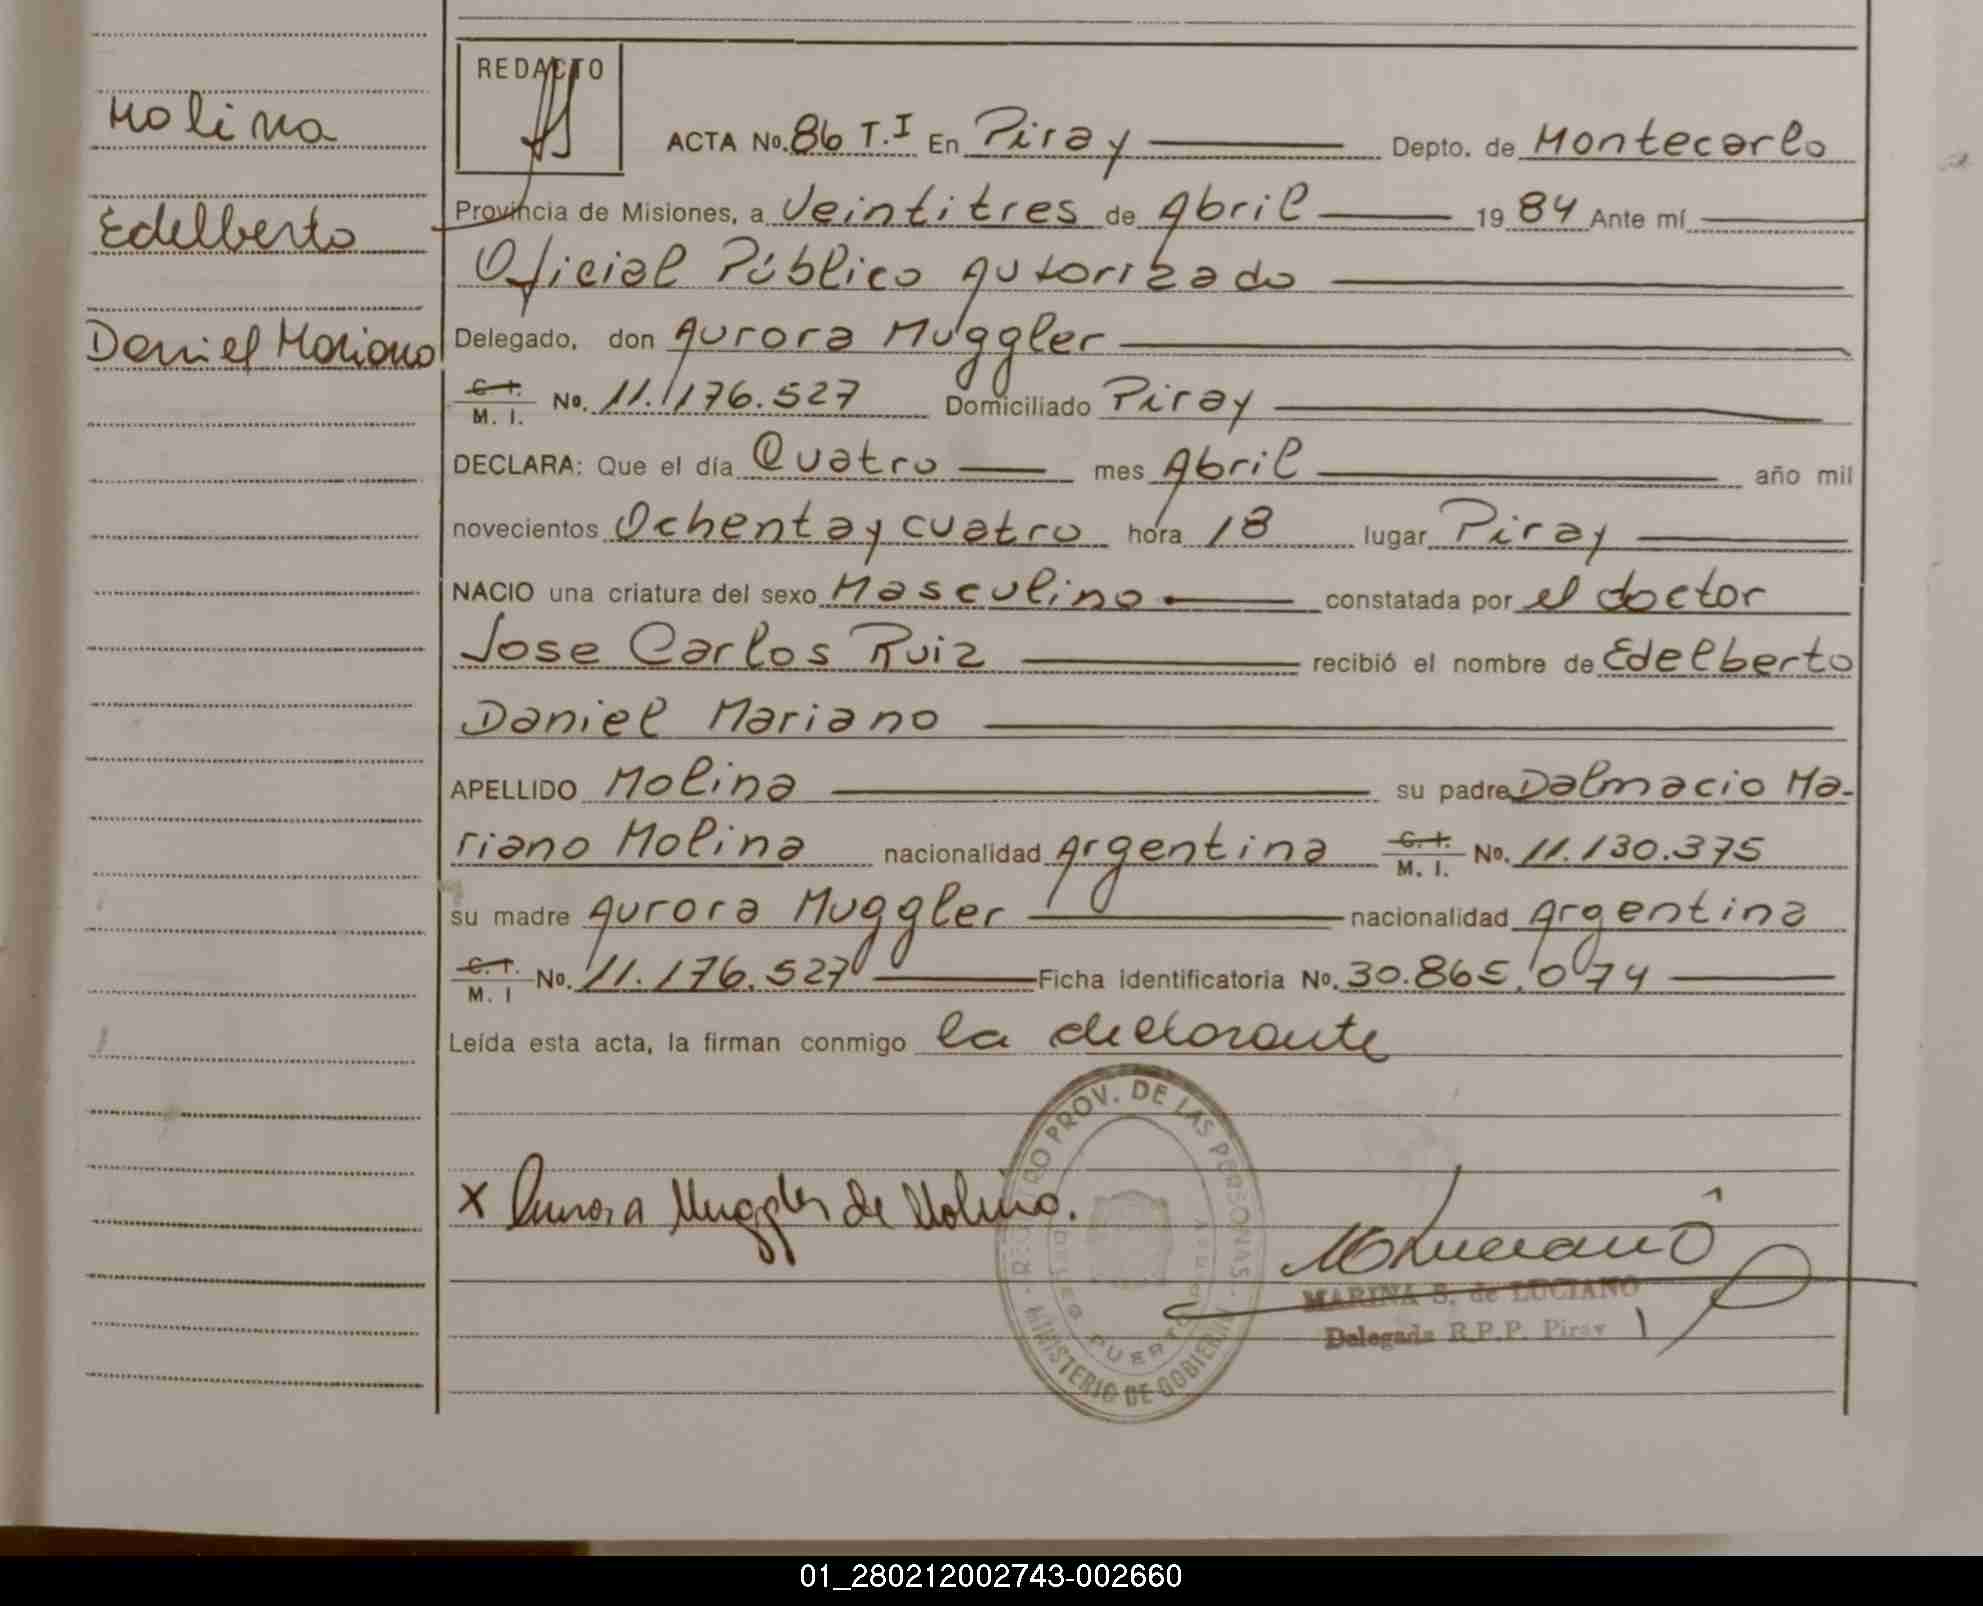 Molina
Edelberto
Daniel Mariano
REDACTO
ACTA No. 86 T.I En Piray Depto. de Montecarlo
Provincia de Misiones, a Veintitres de Abril 19 84 Ante mí
Oficial Público Autorizado
Delegado, don Aurora Muggler
C. I. M. I. No. 11.176.527 Domiciliado Piray
DECLARA: Que el día Cuatro mes Abril año mil
novecientos Ochenta y cuatro hora 18 lugar Piray
NACIO una criatura del sexo Masculino constatada por el doctor
Jose Carlos Ruiz recibió el nombre de Edelberto
Daniel Mariano
APELLIDO Molina su padre Dalmacio Ma-
riano Molina nacionalidad Argentina C. I. M. I. No. 11.130.375
su madre Aurora Muggler nacionalidad Argentina
C. I. M. I No. 11.176.527 Ficha identificatoria No. 30.865.074
Leída esta acta, la firman conmigo la declarante
REGISTRO PROV. DE LAS PERSONAS
MINISTERIO DE GOBIERNO
X Aurora Muggler de Molina.
MARINA S. de LUCIANO
Delegada R.P.P. Piray
01_280212002743-002660